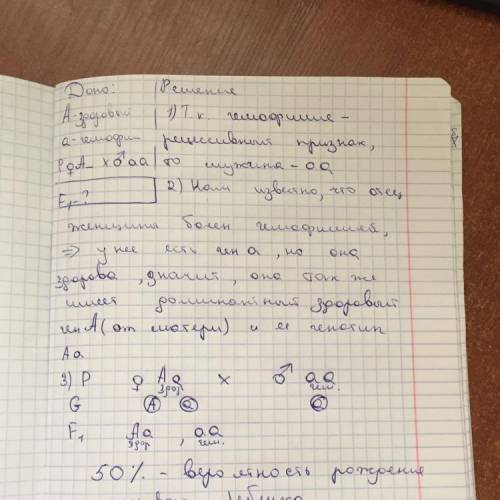 Дано: Решение
А-здоровый 1) Т.к. гемофилия -
а-гемофи рецессивный признак,
P ♀A- x ♂aa то мужчина - aa
F₁-? 2) Нам известно, что отец
женщины болен гемофилией,
⇒ у нее есть ген а, но она
здорова, значит, она так же
имеет доминантный здоровый
ген А (от матери) и ее генотип
Аа
3) P ♀ Aa x ♂ aa
здор. гем.
G A a a
F₁ Aa , aa
здор гем.
50% - вероятность рождения
ребенка